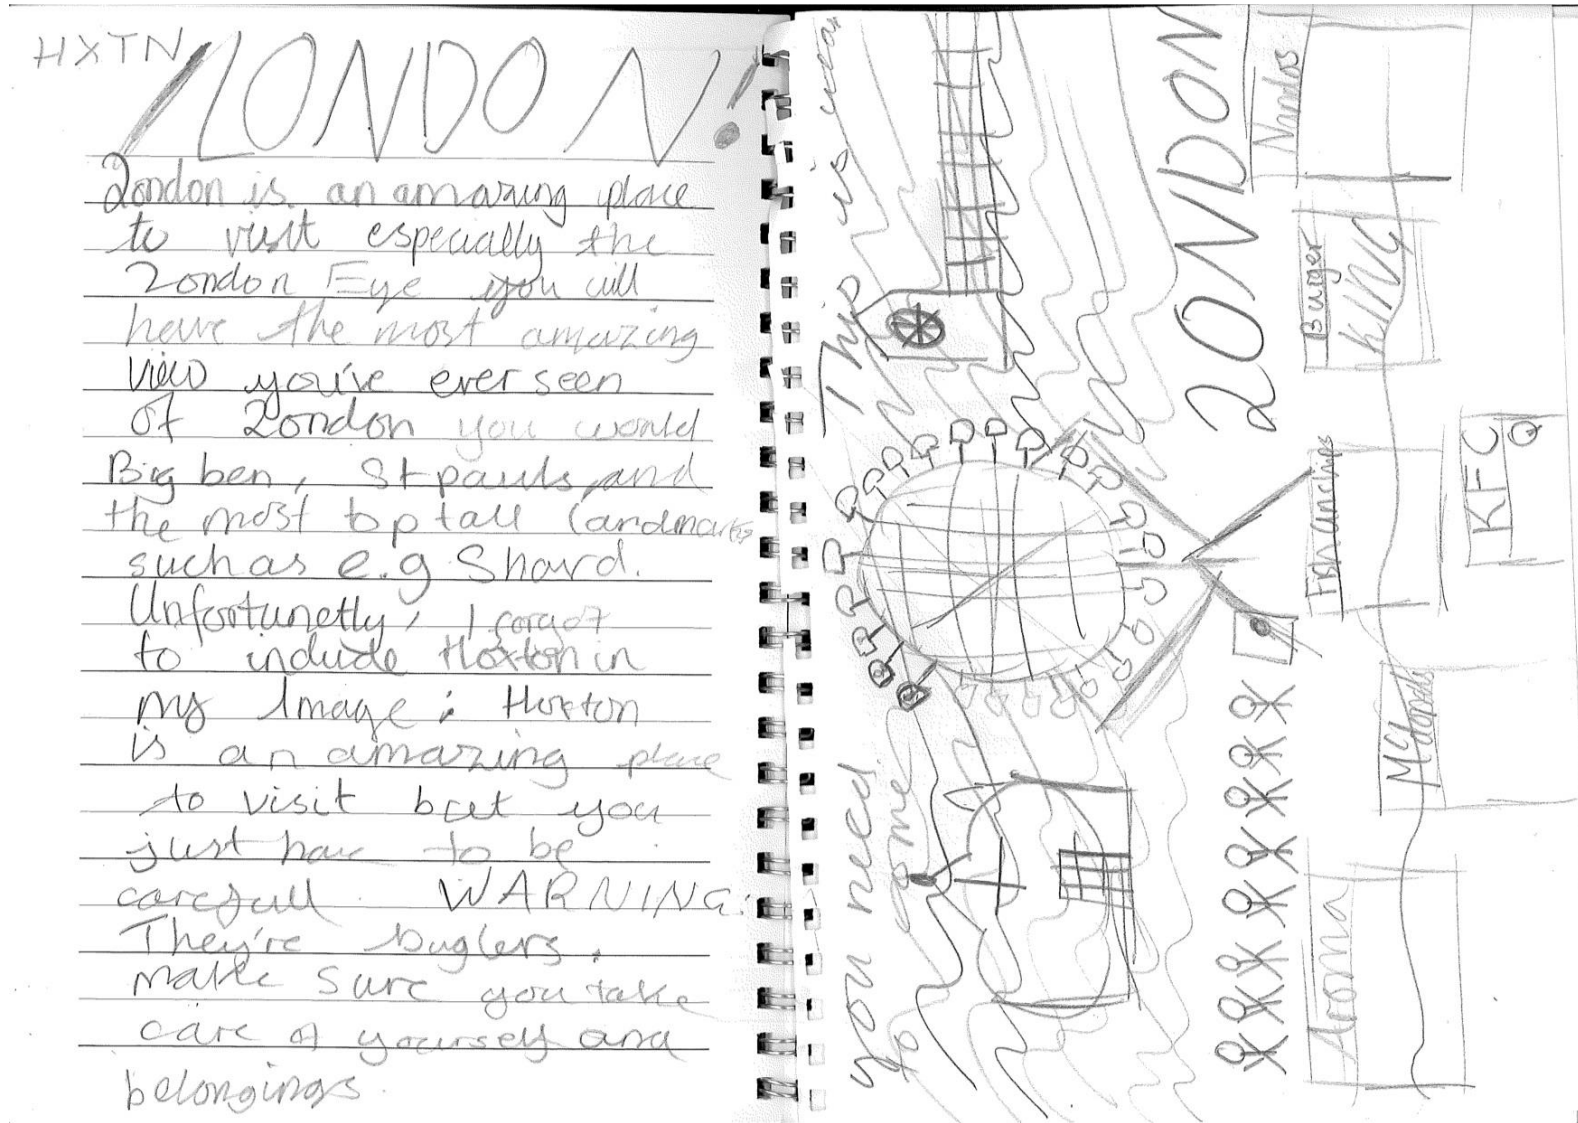 HXTN
LONDON!
London is an amazing place
to visit especially the
London Eye you will
have the most amazing
view you've ever seen
of London you would
Big ben, St pauls, and
the most top tall landmarks
such as e.g Shard.
Unfortunetly, I forgot
to include Hoxton in
my Image; Hoxton
is an amazing place
to visit but you
just have to be
carefull WARNING:
They're buglers.
make sure you take
care of yourself and
belongings.
you need This is war
to come
LONDON
Aroma
Mcdonalds
Fish an chips
Burger
KING
Nandos
KFC